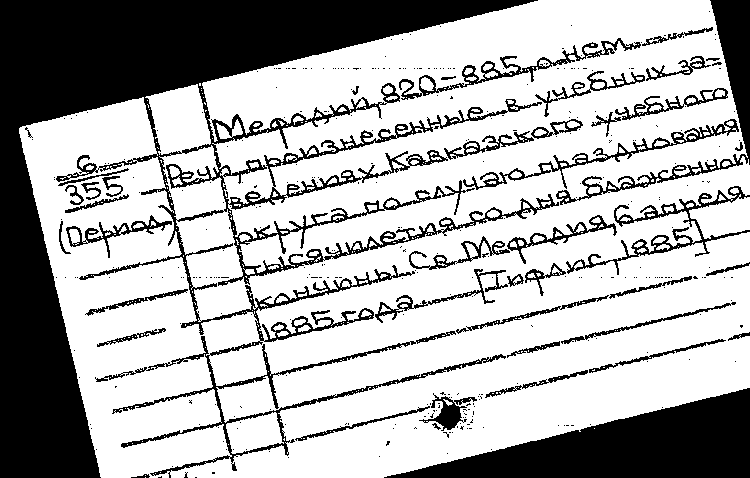 Мефодий, 820-885, о нем.
6
355
(Период.)
Речи, произнесенные в учебных за=
ведениях Кавказского учебного
округа по случаю празднования
тысячилетия со дня блаженной
кончины Св Мефодия, 6 апреля
1885 года. [Тифлис, 1885]